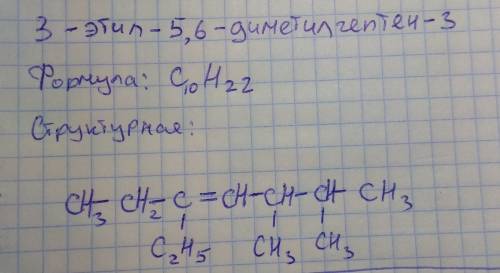 3 - этил - 5,6 - диметилгептен - 3
Формула: C₁₀H₂₂
Структурная:
CH₃ - CH₂ - C = CH - CH - CH - CH₃
C₂H₅ CH₃ CH₃